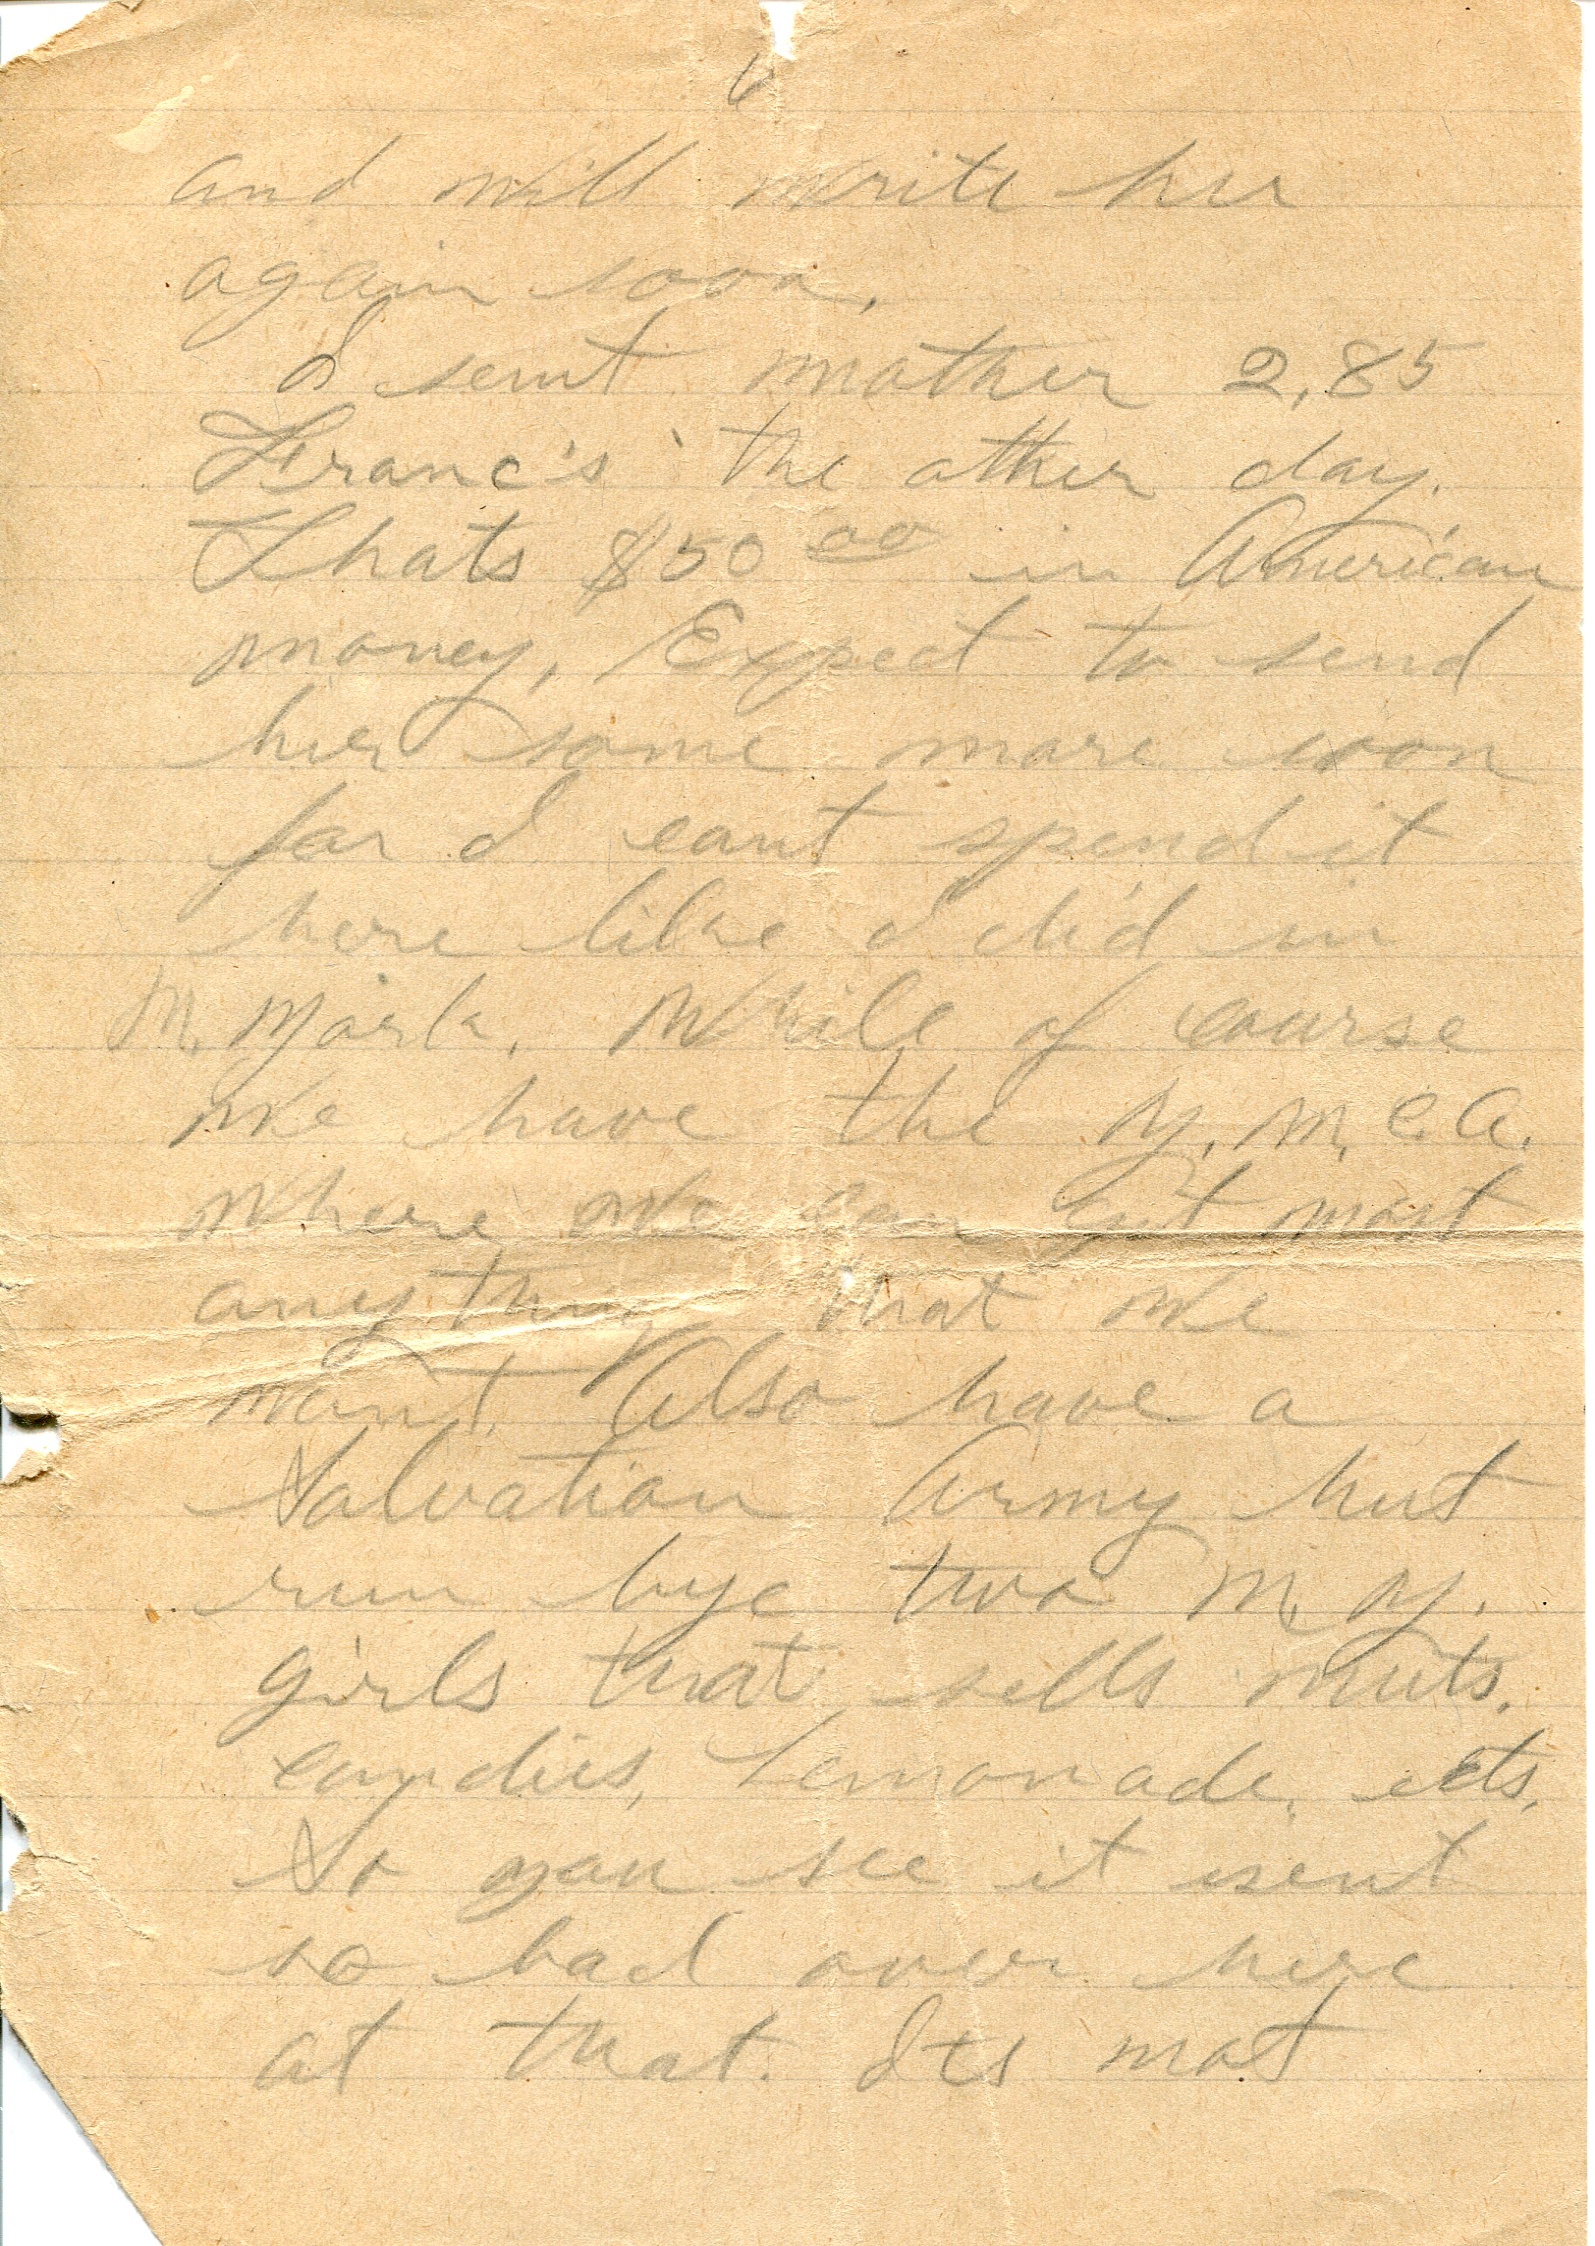 6
and will write her
again soon.
I sent mother 2,85
Franc's the other day.
Thats $50 00 in American
money, Expect to send
her some more soon
for I cant spend it
here like I did in
N. York. While of course
we have the Y. M. C. A.
where we can get most
anything that we
want. Also have a
Salvation Army hut
run bye two N. Y.
girls that sells nuts.
candies, Lemonade. ects.
So you see it isent
so bad over here
at that. Its not